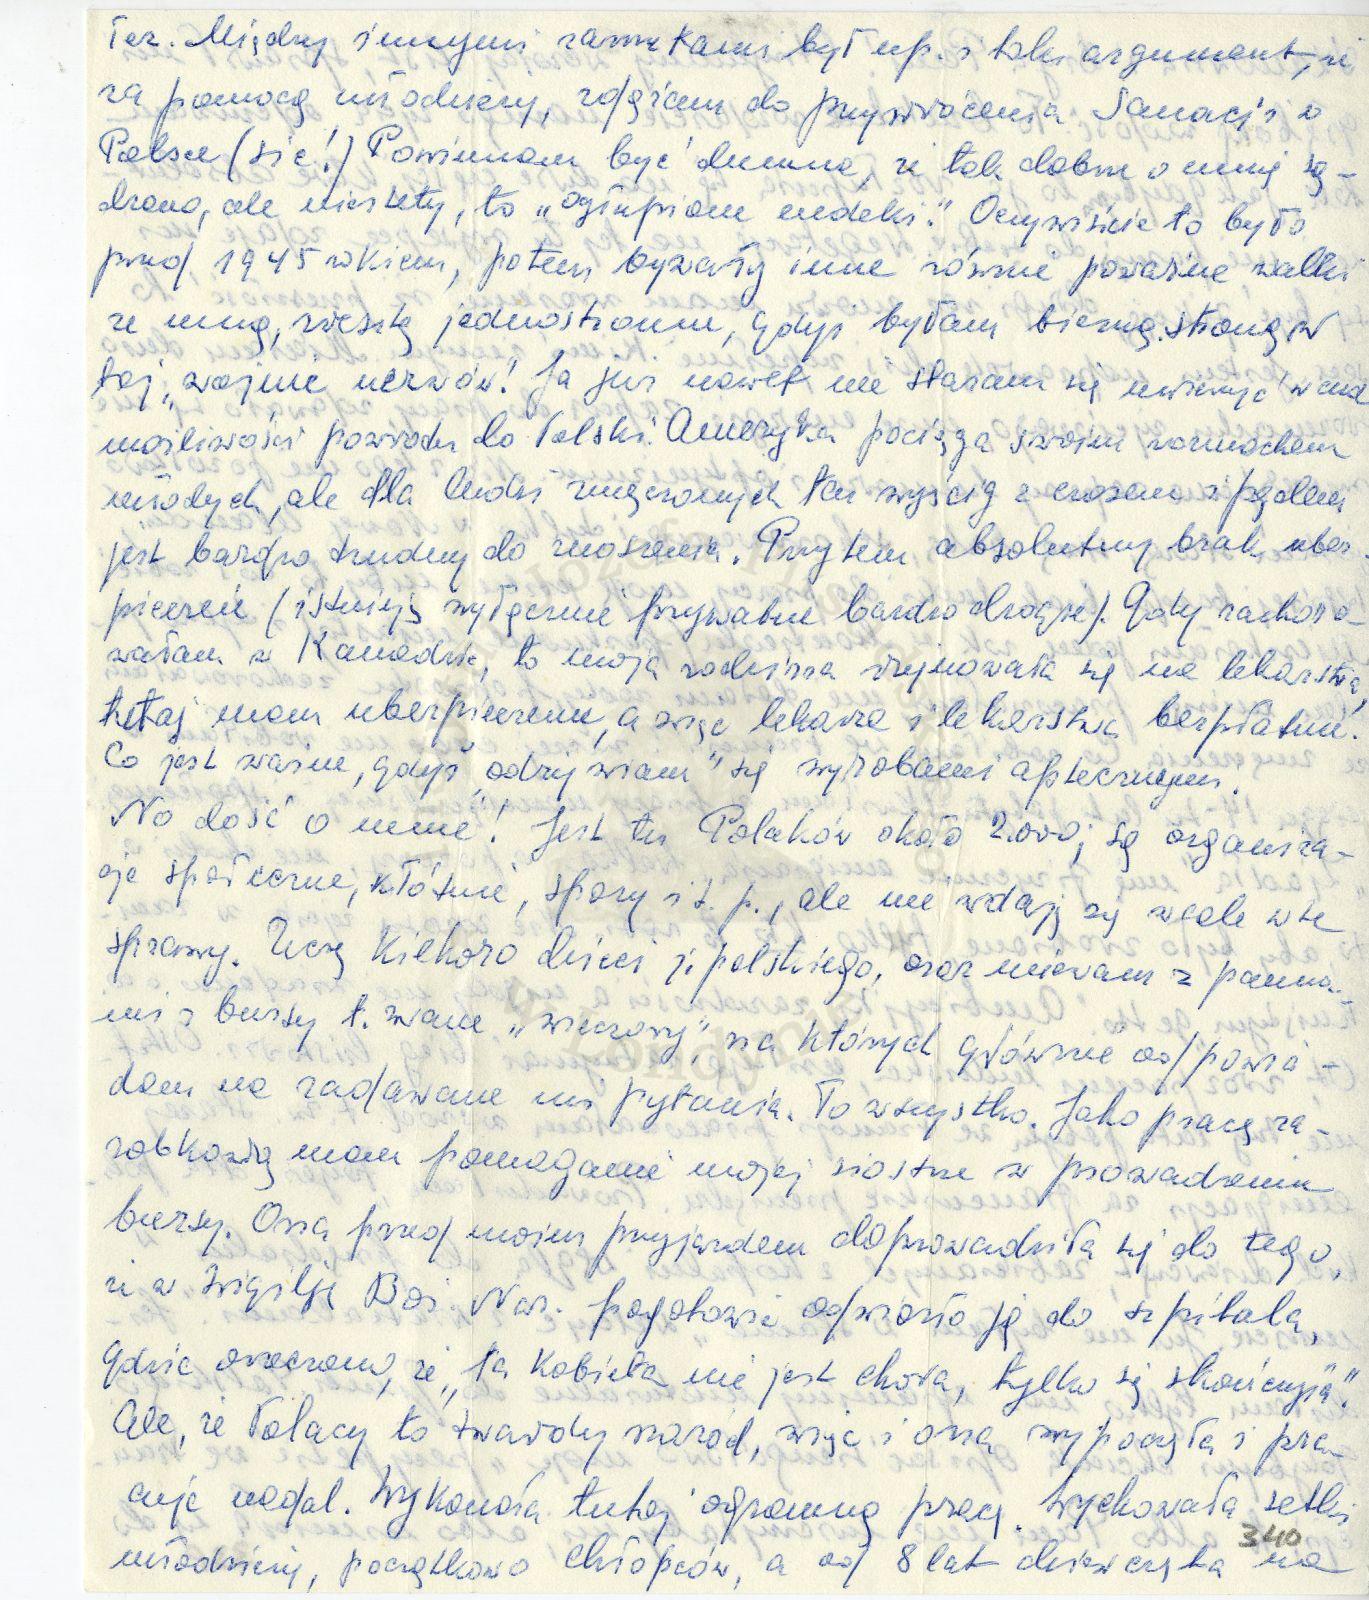 też. Między innymi zarzutami był np. i taki argument, że
za pomocą młodzieży, dążiłam do przywrócenia Sanacji w
Polsce (sic!) Powinnam być dumna, że tak dobrze o mnie są-
dzono, ale niestety, to „ogłupione endeki." Oczywiście to było
przed 1945 rokiem, potem bywały inne równie poważne walki
ze mną, zresztą jednostronne, gdyż byłam bierną stroną w
tej „wojnie nerwów! Ja już nawet nie staram się uwierzyć w
możliwości powrotu do Polski. Ameryka pociąga swoim rozmachem
młodych, ale dla ludzi zmęczonych ten wyścig z czasem i pędem
jest bardzo trudny do znoszenia. Przytem absolutny brak ubez-
pieczeń (istnieją wyłącznie prywatne bardzo drogie). Gdy zachoro-
wałam w Kanadzie, to moja rodzina zrujnowała się na lekarstwa,
tutaj mam ubezpieczenie, a więc lekarze i lekarstwa bezpłatnie.
Co jest ważne, gdyż „odżywiam" się wyrobami aptecznymi.
No dość o mnie! Jest tu Polaków około 2.000; są organiza-
cje społeczne, kłótnie, spory i t. p., ale nie wdaję się wcale w te
sprawy. Uczę kilkoro dzieci j. polskiego, oraz miewam z panna-
mi z bursy t. zwane „wieczory", na których głównie odpowia-
dam na zadawane mi pytania. To wszystko. Jako pracę za-
robkową mam pomaganie mojej siostrze w prowadzeniu
bursy. Ona przed moim przyjazdem doprowadziła się do tego,
że w Wigilję Boż. Nar. pogotowie odwiozło ją do szpitala,
gdzie orzeczono, że „ta kobieta nie jest chora, tylko się skończyła".
Ale, że Polacy to twardy naród, więc i ona wypoczęła i pra-
cuje nadal. Wykonała tutaj ogromną pracę, wychowała setki
młodzieży, początkowo chłopców, a od 8 lat dziewczęta na
340
Józefa
w Londynie